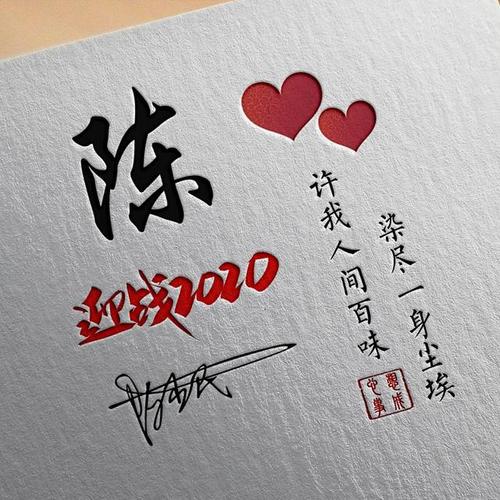 陈
迎战2020
许我人间百味
染尽一身尘埃
心想事成